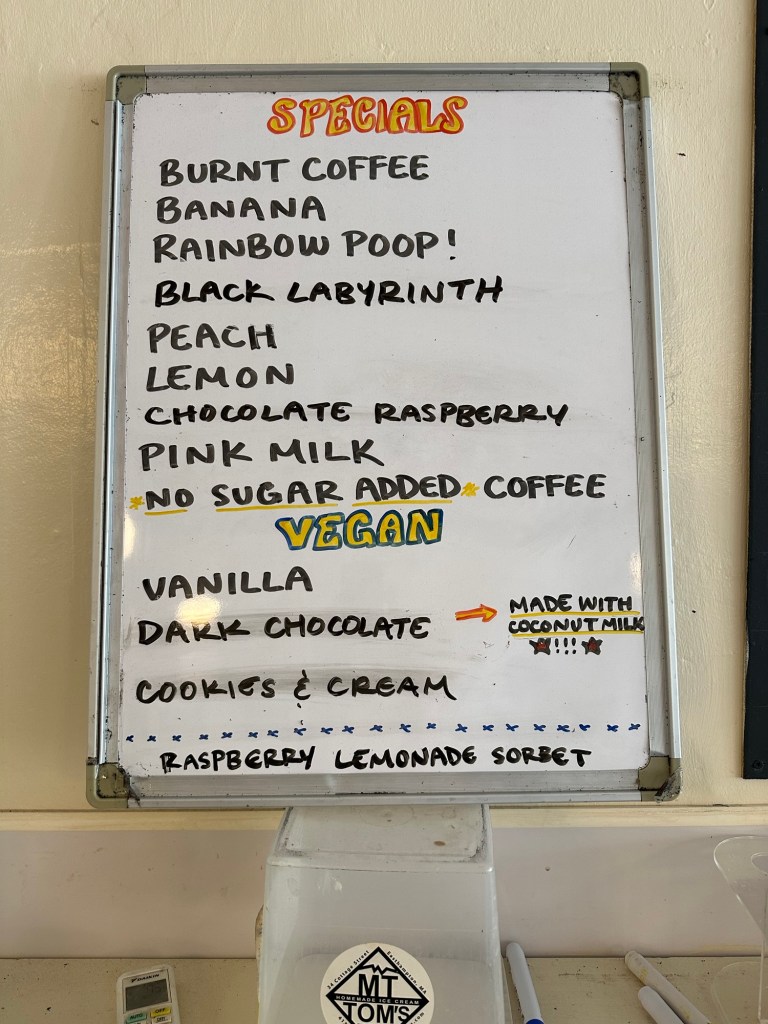 SPECIALS
BURNT COFFEE
BANANA
RAINBOW POOP!
BLACK LABYRINTH
PEACH
LEMON
CHOCOLATE RASPBERRY
PINK MILK
*NO SUGAR ADDED* COFFEE
VEGAN
VANILLA
DARK CHOCOLATE → MADE WITH
COCONUT MILK
★!!!★
COOKIES & CREAM
RASPBERRY LEMONADE SORBET
DAIKIN
34 Cottage Street Easthampton, MA
MT
HOMEMADE ICE CREAM
TOM'S